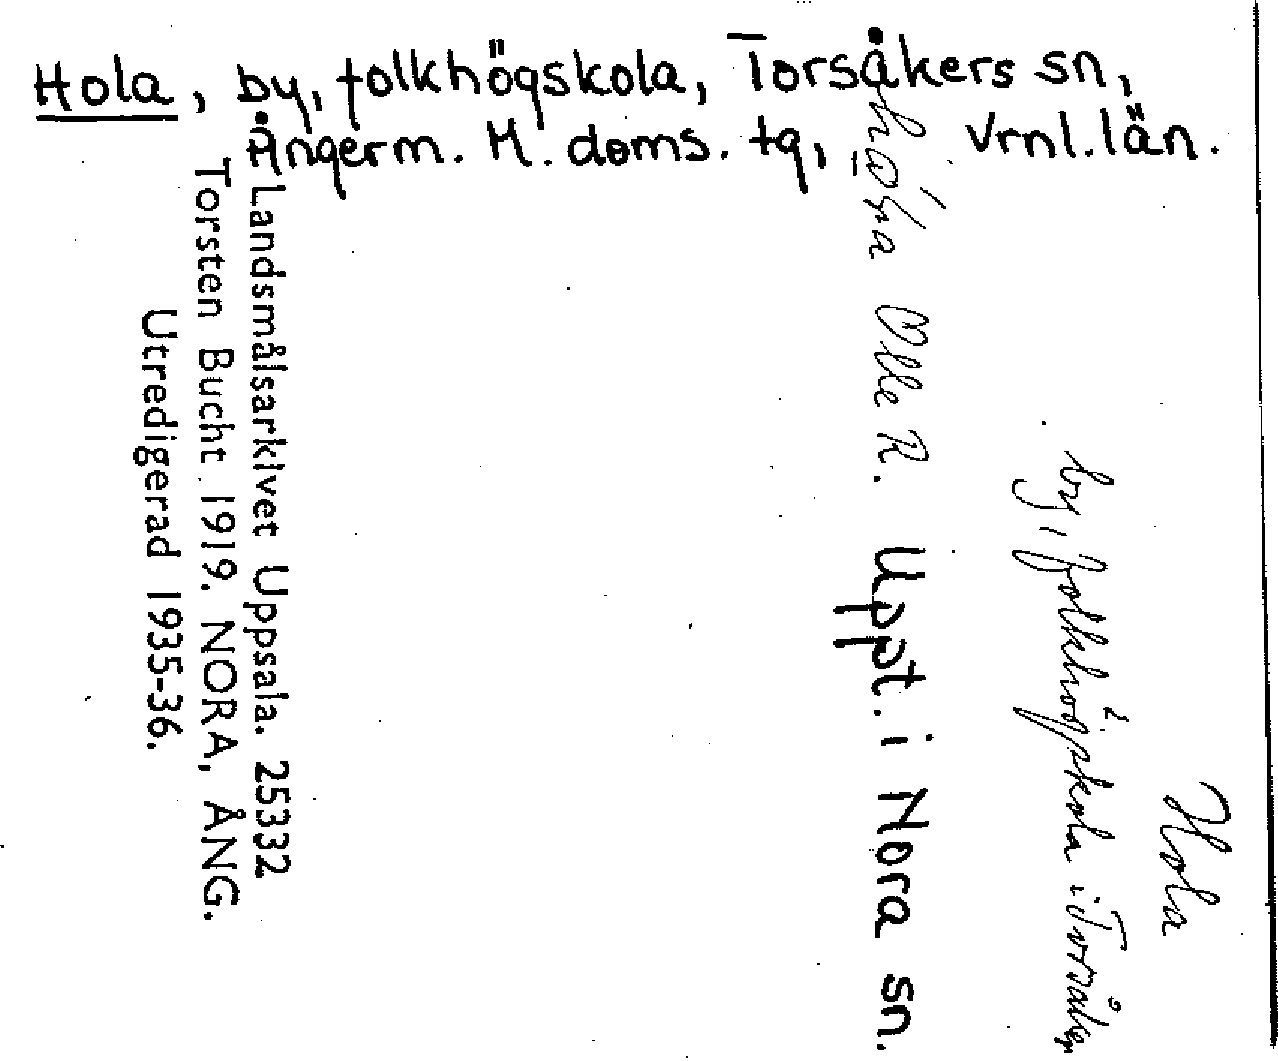 Hola, by, folkhögskola, Torsåkers sn,
Ångerm. M. doms. tg, Vrnl. län.
Hola
by, folkhögskola i Torsåker
Olle R. Uppt. i Nora sn.
Landsmålsarkivet Uppsala. 25332
Torsten Bucht 1919. NORA, ÅNG.
Utredigerad 1935-36.